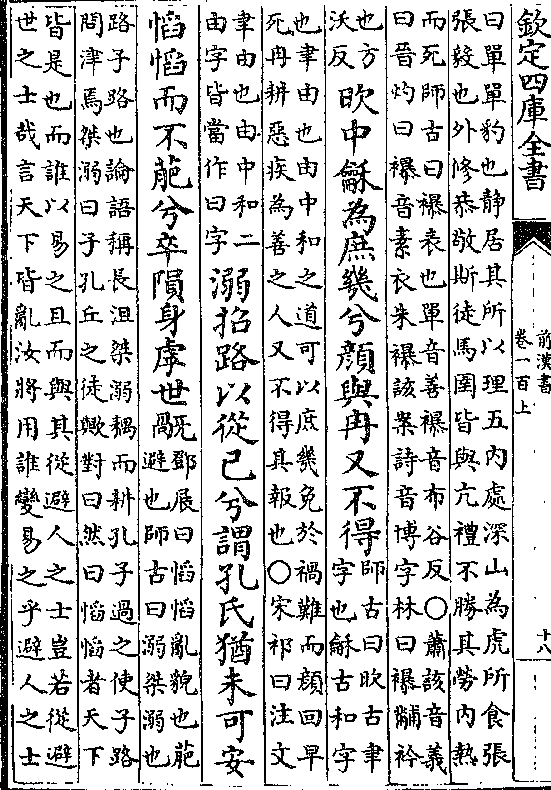 欽定四庫全書
前漢書
卷一百上
十八
曰單單豹也静居其所以理五内處深山為虎所食張
張毅也外修恭敬斯徒馬圉皆與亢禮不勝其勞内熱
而死師古曰襮表也單音善襮音布谷反〇蕭該音義
曰晉灼曰襮音素衣朱襮該案詩音博字林曰襮黼衿
也方
沃反
欥中龢為庶幾兮顔與冉又不得
師古曰欥古聿
字也龢古和字
也聿由也由中和之道可以庶幾免於禍難而顔回早
死冉耕惡疾為善之人又不得其報也〇宋祁曰注文
聿由也由中和二
由字皆當作曰字
溺招路以從已兮謂孔氏猶未可安
慆慆而不萉兮卒隕身虖世旤
鄧展曰慆慆亂貌也萉
避也師古曰溺桀溺也
路子路也論語稱長沮桀溺耦而耕孔子過之使子路
問津焉桀溺曰子孔丘之徒歟對曰然曰慆慆者天下
皆是也而誰以易之且而與其從避人之士豈若從避
世之士哉言天下皆亂汝將用誰變易之乎避人之士